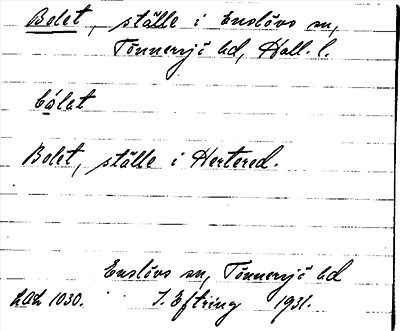 Bolet, ställe i Enslövs sn,
Tönnersjö hd, Hall. l.
bålet
Bolet, ställe i Hertered.
Enslövs sn, Tönnersjö hd
LAL 1030. I. Eftring 1931.